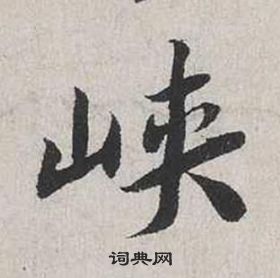 峡
词典网